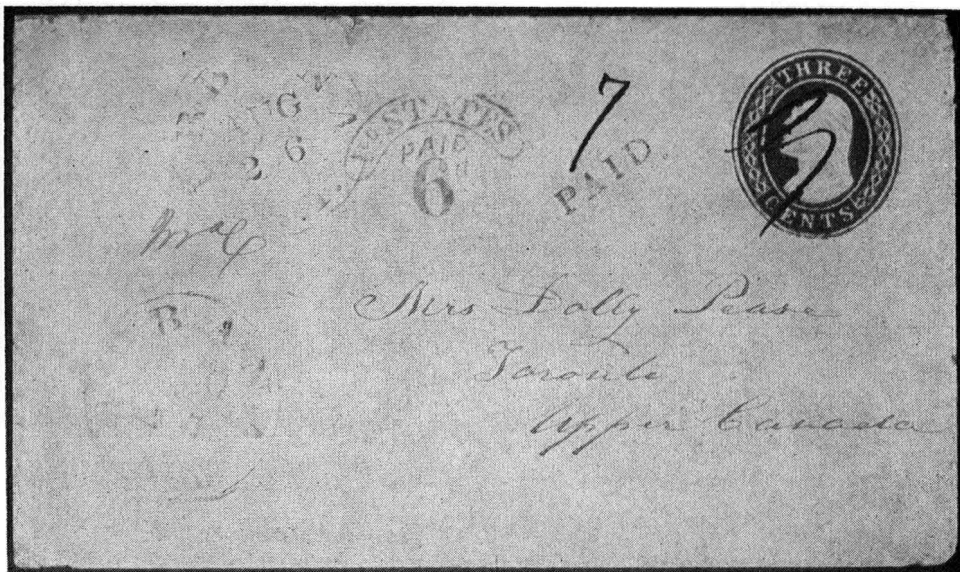 AUG
26
STATES
PAID
6d
7
PAID.
THREE
CENTS
Mrs Dolly Pease
Toronto
Upper Canada